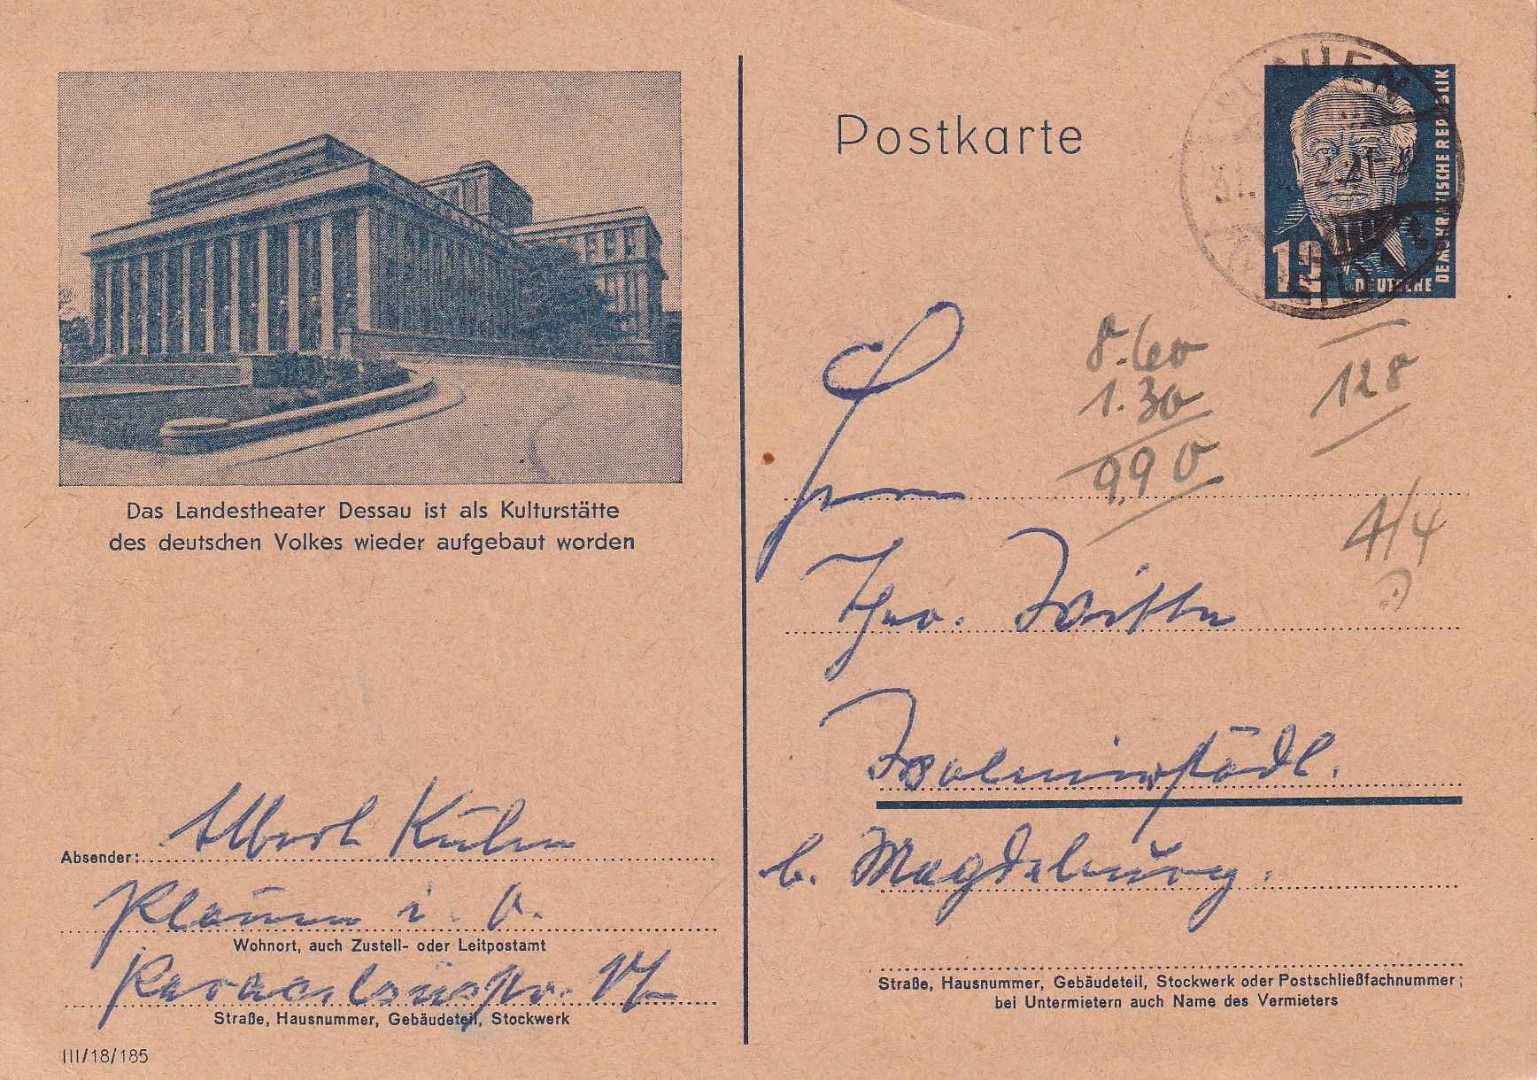 Das Landestheater Dessau ist als Kulturstätte
des deutschen Volkes wieder aufgebaut worden
Absender: Albert Kühn
Plauen i. V.
Wohnort, auch Zustell- oder Leitpostamt
Paracelsusstr.
Straße, Hausnummer, Gebäudeteil, Stockwerk
III/18/185
Postkarte
PLAUEN
DEUTSCHE
DEMOKRATISCHE REPUBLIK
8.60
1.30
9,90
128
4/4
Herrn
Theo. Witte
Wolmirstädt.
b. Magdeburg.
Straße, Hausnummer, Gebäudeteil, Stockwerk oder Postschließfachnummer;
bei Untermietern auch Name des Vermieters